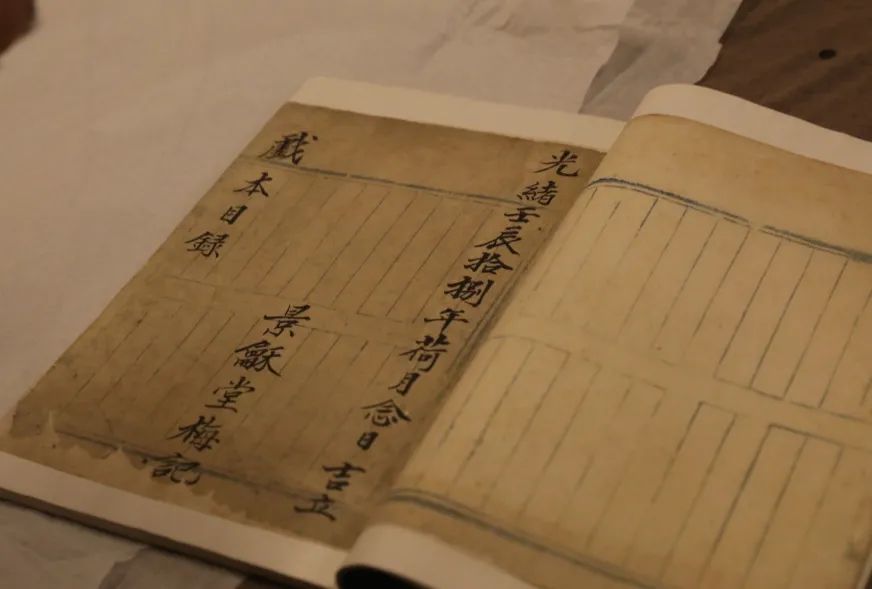 光緒壬辰拾捌年荷月念日 吉立
景龢堂梅記
戲本目録